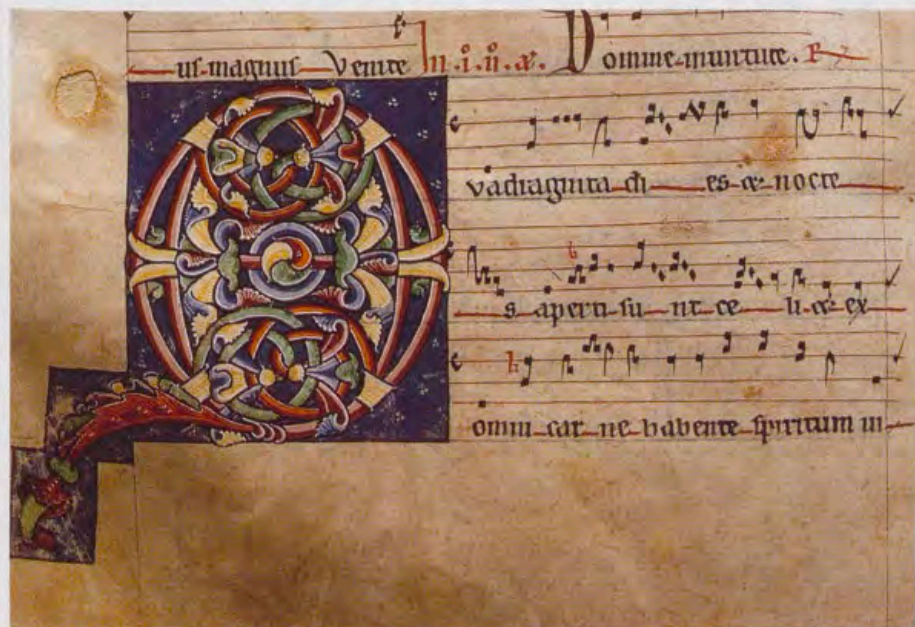 us magnus Venite In .i. n. ꝶ. Domine in uirtute. Ps
Quadraginta di es ⁊ nocte
s aperti su nt ce li ⁊ ex
omni car ne habente spiritum ui